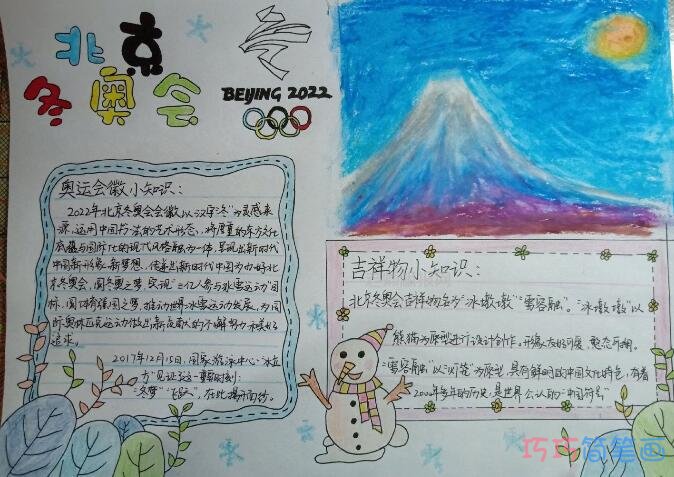 北京
冬奥会
BEIJING 2022
奥运会徽小知识：
2022年北京冬奥会会徽以汉字"冬"为灵感来
源，运用中国书法的艺术形态，将厚重的东方文化
底蕴与国际化的现代风格融为一体，呈现出新时代
中国新形象、新梦想，传
出新时代中国为办好北
京冬奥会，圆冬奥之梦，实现"三亿人参与冰雪运动"目
标，
体育强国之梦，推动世界冰雪运动发展，为国
际奥林匹克运动做出新贡献的不懈努力和美好
追求。
2017年12月15日，国家游泳中心"水立
方"见证了这一
时刻：
"冬梦""飞跃"，在此揭开面纱。
吉祥物小知识：
北京冬奥会吉祥物名为"冰墩墩""雪容融"。"冰墩墩"以
熊猫为原型进行设计创作。形象友好可爱、憨态可掬。
"雪容融"以"灯笼"为原型，具有鲜明的中国文化特色，有着
2000多年的历史，是世界公认的"中国符号"
巧巧简笔画